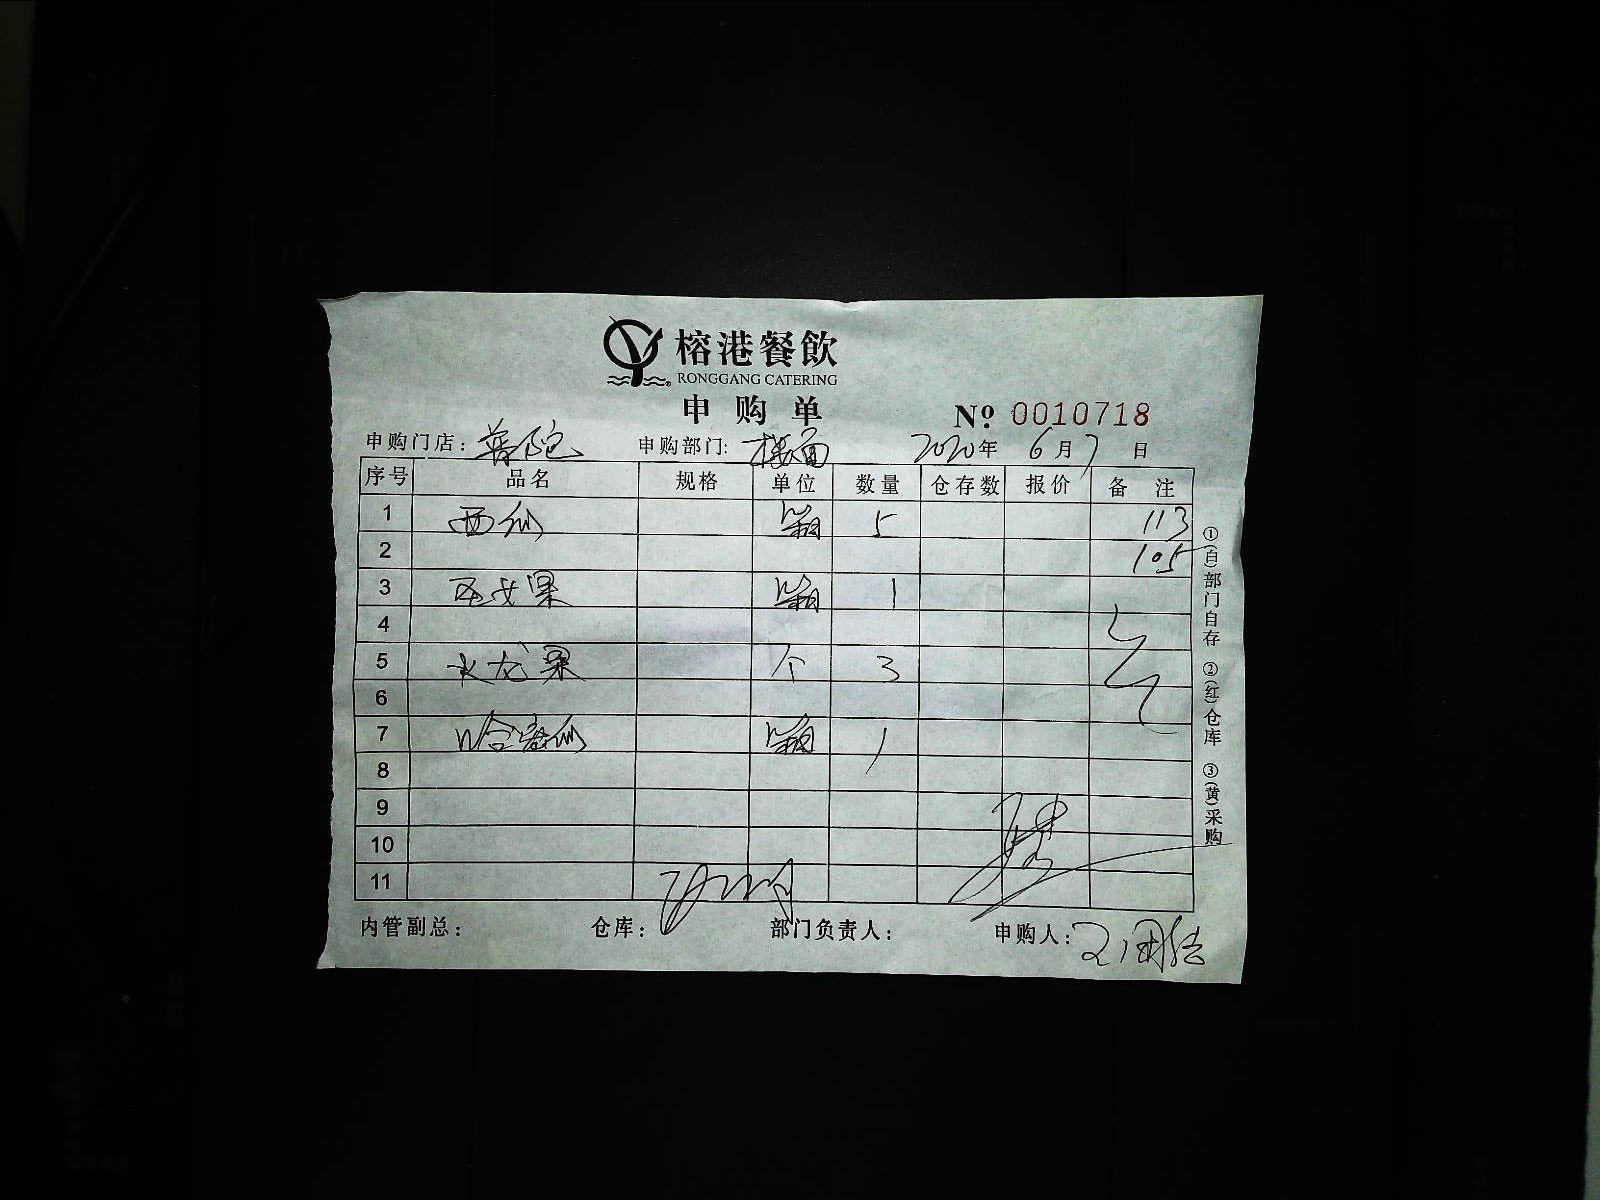 榕港餐飲
RONGGANG CATERING
申购单
№ 0010718
申购门店：普陀 申购部门：楼面 2020年6月7日
序号 品名 规格 单位 数量 仓存数 报价 备注
1 西仙 箱 5 113
2 105
3 圣女果 箱 1
4
5 火龙果 个 3
6
7 哈密仙 箱 1
8
9
10
11
内管副总： 仓库： 部门负责人： 申购人：
①(白)部门自存 ②(红)仓库 ③(黄)采购